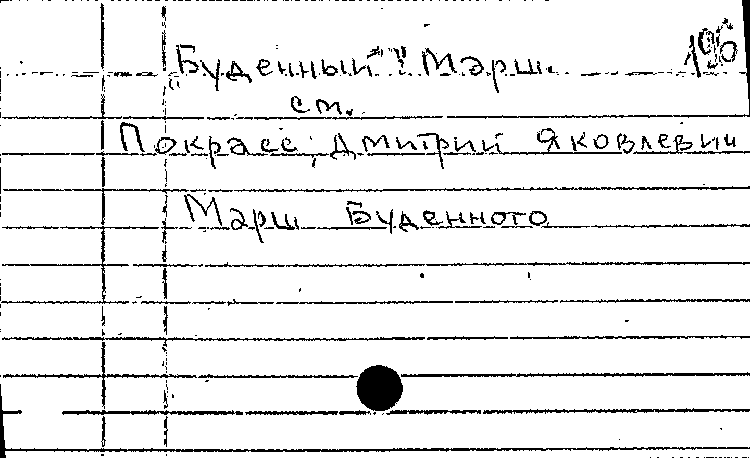 196
„Буденный"! Марш.
см.
Покрасс, Дмитрий Яковлевич
Марш Буденного